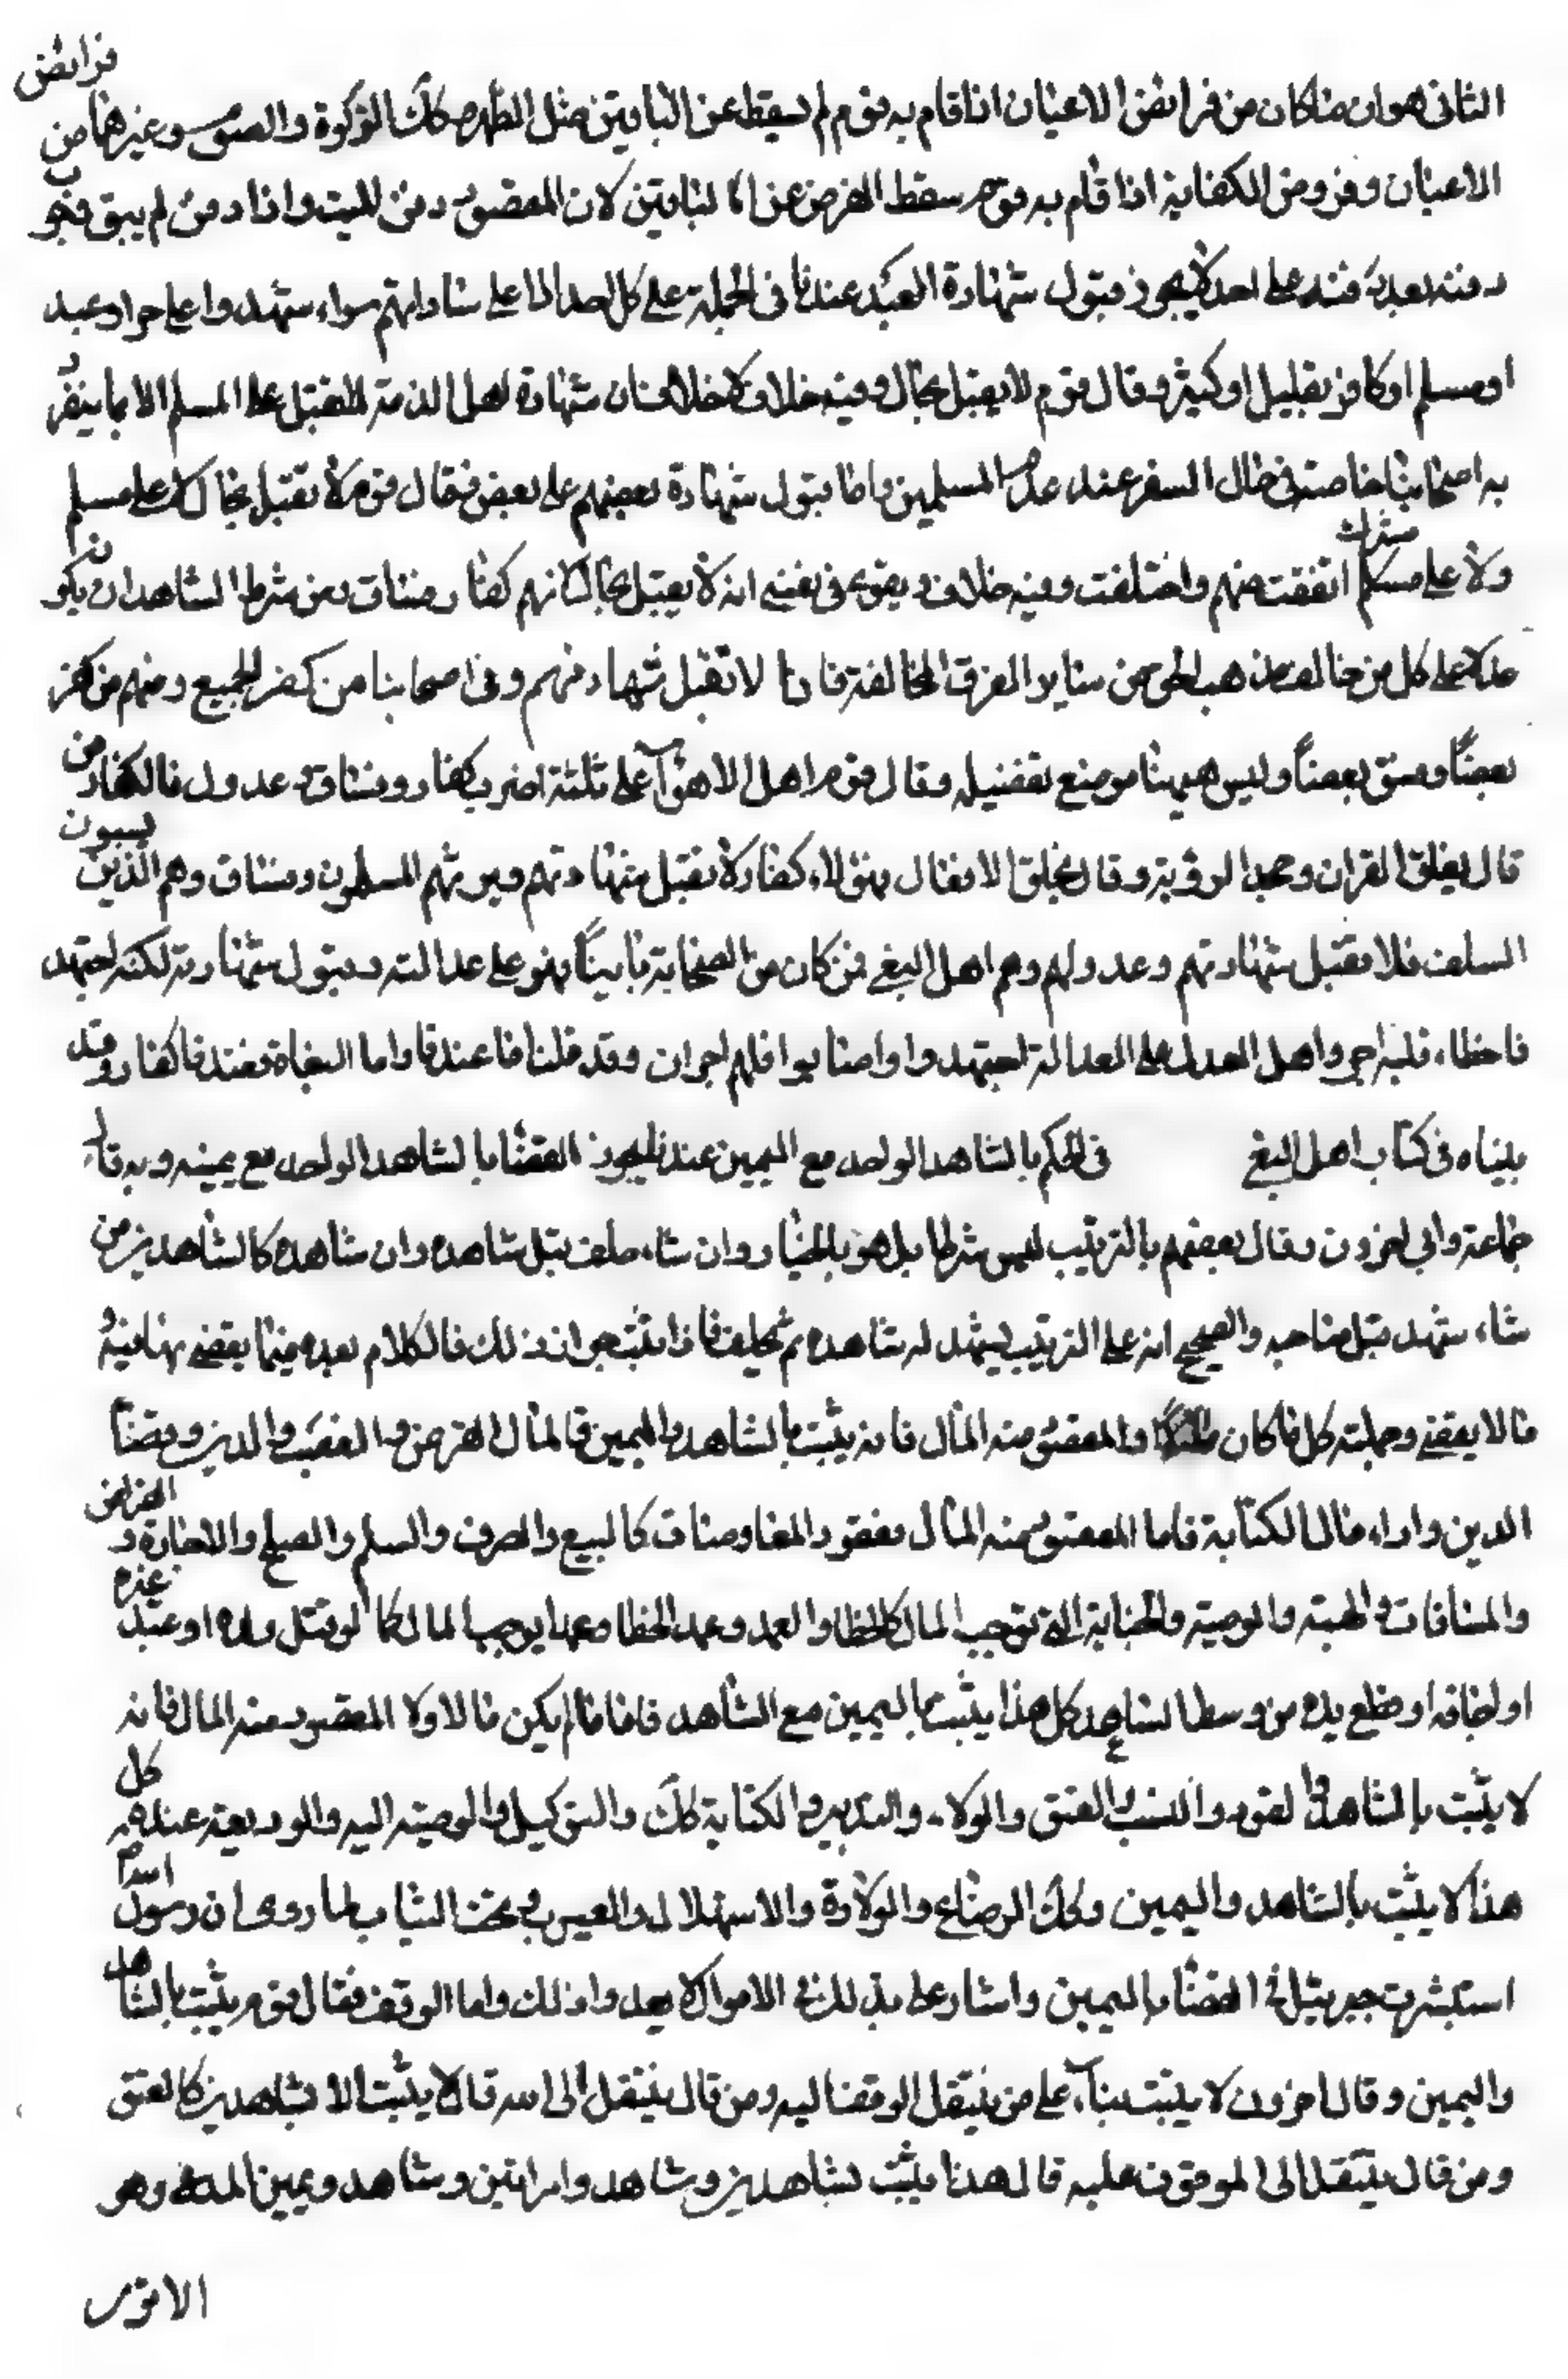 الثانى هو ان ما كان من فرائض الاعيان اذا قام به قوم لم يسقط عن الباقين مثل الطهر وكك الزكوة والصوم وغيرها من فرائض
الاعيان وفروض الكفاية اذا قام به قوم سقط الفرض عن الباقين لان المقصود دفن الميت واذا دفن لم يبق فيجب
دفنه بعد دفنه على احد لا يجوز قبول شهادة العبد عندنا فى الجملة على كل احد الا على ساداتهم سواء شهدوا على حر او عبد
او مسلم او كافر بقليل او كثير وقال قوم لا يقبل بحال وفيه خلاف لا خلاف ان شهادة اهل الذمة لا تقبل على المسلم الا ما ينفرد
به اصحابنا خاصة فى حال السفر عند عدم المسلمين واما قبول شهادة بعضهم على بعض فقال قوم لا تقبل بحال لا على مسلم
ولا على مشرك اتفقت منهم واختلفت وفيه خلاف ويقوى فى نفسى انه لا يقبل بحال لانهم كفار فساق ومن شرط الشاهد ان يكون
عدلا على كل من خالف مذهب الحق من ساير الفرق المخالفة فانا لا تقبل شهادتهم وفى اصحابنا من كفر الجميع ومنهم من كفر
بعضاً وفسق بعضاً وليس ههنا موضع تفصيله وقال قوم اهل الاهوآء على ثلثة اضرب كفار وفساق وعدول فالكفار من
قال بخلق القران وجحد الرؤية وقال بخلق الافعال فهؤلاء كفار لا تقبل شهادتهم ولا يرثهم المسلمون وفساق وهم الذين يسبون
السلف فلا تقبل شهادتهم وعدولهم وهم اهل البغى فمن كان من الصحابة باغياً فهو على عدالته وقبول شهادته لكنه اجتهد
فاخطاء فله اجر واهل العدل على العدالة اجتهدوا واصابوا فلهم اجران وقد قلنا ما عندنا واما البغاة فعندنا كفار وقد
بيناه فى كتاب اهل البغى فى الحكم بالشاهد الواحد مع اليمين عندنا يجوز القضا بالشاهد الواحد مع يمينه وبه قال
جماعة وابى اخرون وقال بعضهم بالترتيب ليس شرطا بل هو بالخيار وان شاء حلف قبل شاهده وان شاهده كالشاهدين من
شاء شهد قبل صاحبه والصحيح انه على الترتيب يشهد له شاهده ثم يحلف فاذا ثبت جواز ذلك فالكلام بعده فيما يقضى بهما فيه و
ما لا يقضى وجملته كل ما كان مالا او المقصود منه المال فانه يثبت بالشاهد واليمين فالمال القرض والغصب والدين وقضاً
الدين واداء مال الكتابة فاما المقصود منه المال فعقود المعاوضات كالبيع والصرف والسلم والصلح والاجارة والقراض
والمساقات والهبة والوصية والجناية التى توجب المال كالخطا والعمد وعمد الخطا وعمد يوجب المال كما لو قتل ولده او عبد غيره
او اجافه او قطع يده من وسط الساعد كل هذا يثبت باليمين مع الشاهد فاما ما لم يكن مالا ولا المقصود منه المال فانه
لا يثبت بالشاهد والقود والنسب والعتق والولاء والتدبير والكتابة كك والتوكيل والوصية اليه والوديعة عنده كل
هذا لا يثبت بالشاهد واليمين وكك الرضاع والولادة والاستهلال والعيوب تحت الثياب لما روى ان رسول الله
استشرت جبرئيل فى القضا باليمين واشار على بذلك فى الاموال لا يعدوا ذلك واما الوقف فقال قوم يثبت بالشاهد
واليمين وقال اخرون لا يثبت بنآء على من ينتقل الوقف اليه ومن قال ينتقل الى الله قال لا يثبت الا بشاهدين كالعتق
ومن قال ينتقل الى الموقوف عليه قال هذا يثبت بشاهدين وبشاهد وامراتين وشاهد ويمين المدعى وهو
الاقوى